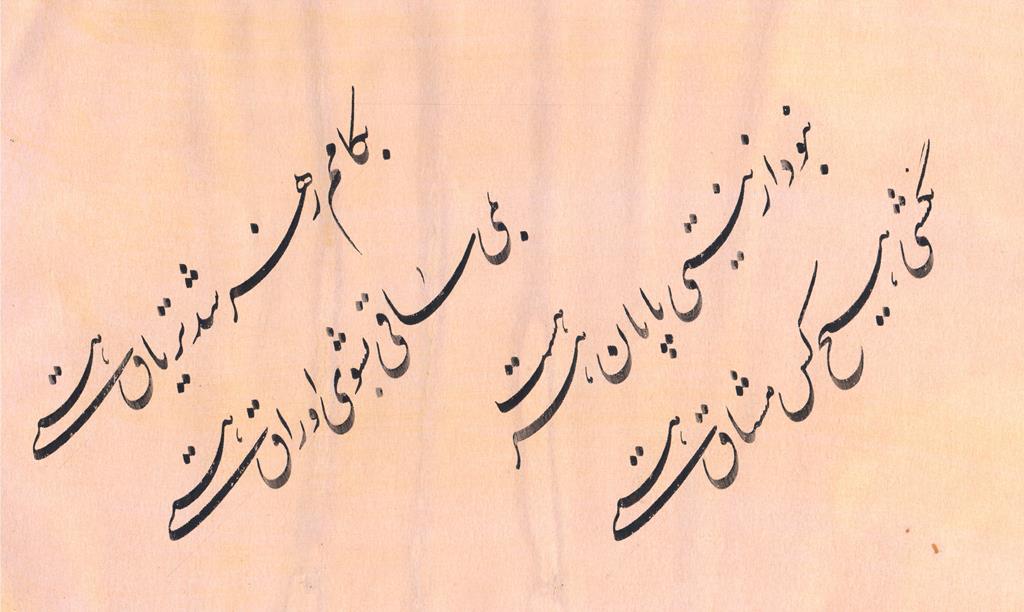 نبود ار نیستی پایان هستی
نگشتی هیچ کس مشتاق هستی
بکامم زهر شد تریاق هستی
بمی ساقی بشوی اوراق هستی